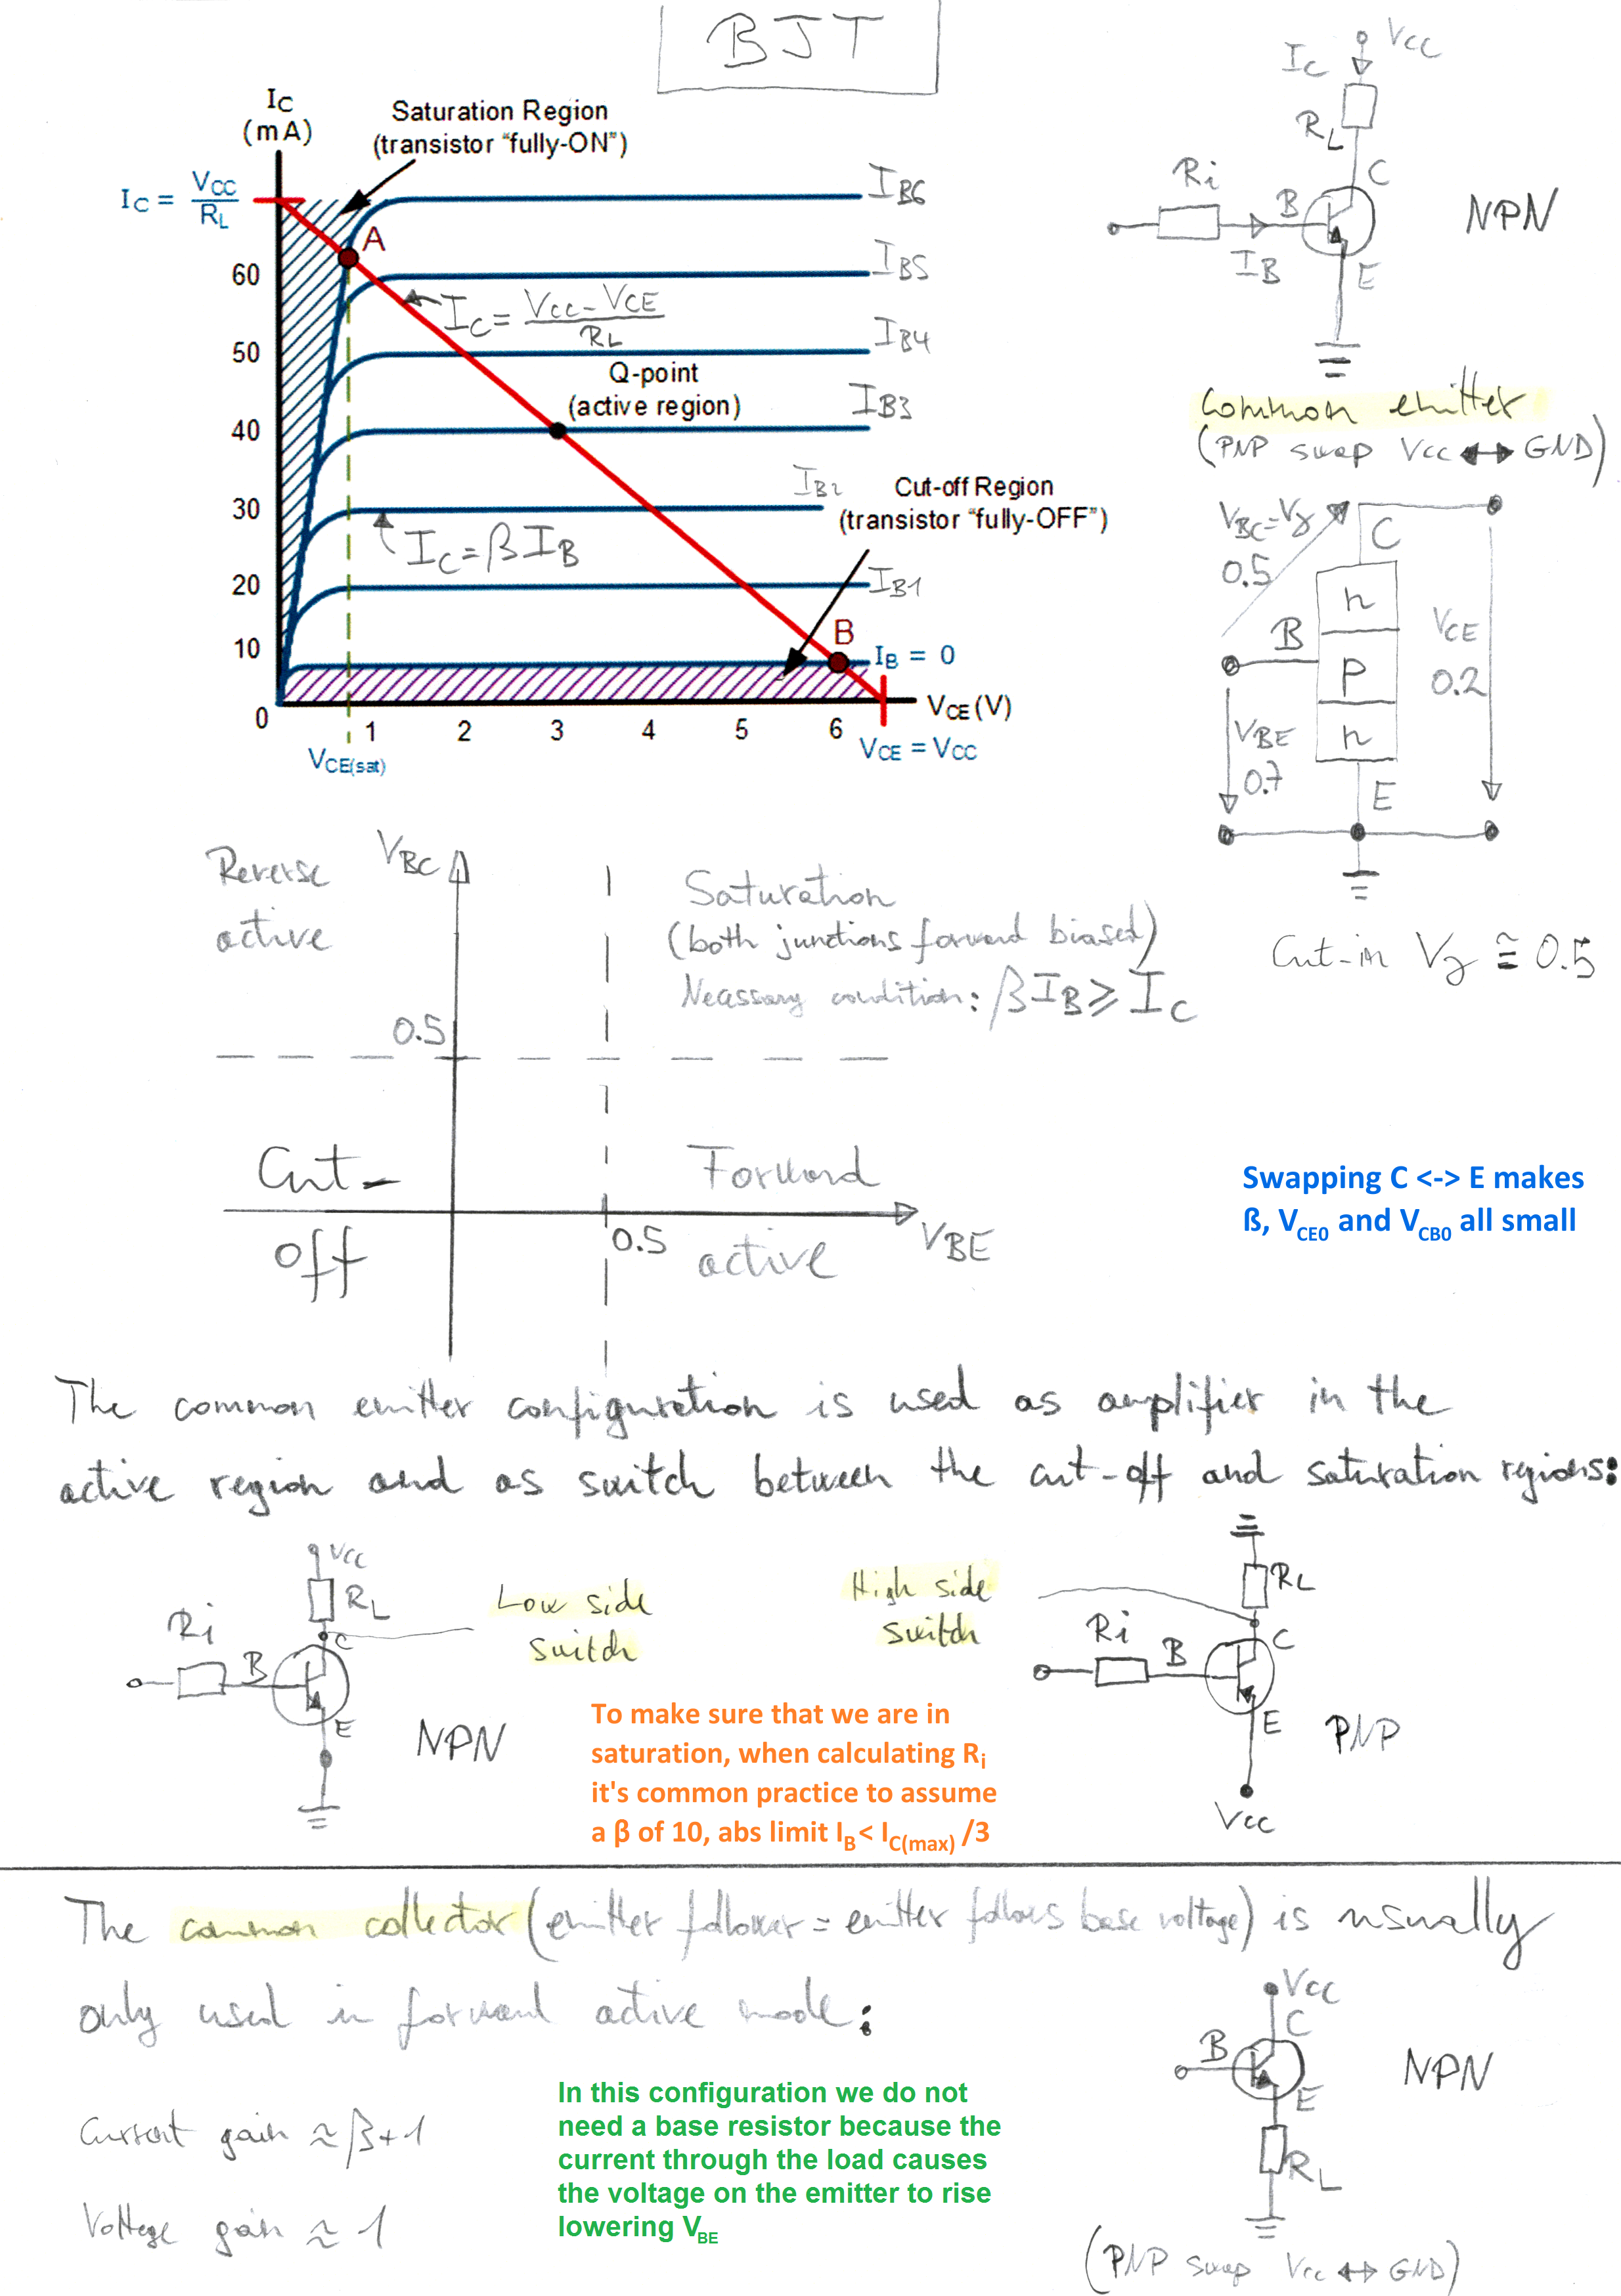 BJT
IC
(mA)
Saturation Region
(transistor "fully-ON")
IC = VCC
RL
IB6
A
60
IB5
IC = VCC - VCE
RL
50
IB4
Q-point
(active region)
IB3
40
IB2
Cut-off Region
(transistor "fully-OFF")
30
IC = βIB
20
IB1
10
B
IB = 0
0
1
2
3
4
5
6
VCE (V)
VCE(sat)
VCE = VCC
IC
VCC
RL
Ri
C
B
NPN
IB
E
common emitter
(PNP swap VCC ↔ GND)
VBC=Vγ
0.5
C
n
B
VCE
p
0.2
VBE
n
0.7
E
Cut-in Vγ ≅ 0.5
Reverse
active
VBC
Saturation
(both junctions forward biased)
Necassary condition: βIB ⩾ IC
0.5
Cut-
off
Forward
active
0.5
VBE
Swapping C <-> E makes
ß, VCE0 and VCB0 all small
The common emitter configuration is used as amplifier in the
active region and as switch between the cut-off and saturation regions:
VCC
RL
Ri
C
B
E
NPN
Low side
switch
High side
switch
RL
Ri
C
B
E
PNP
VCC
To make sure that we are in
saturation, when calculating Ri
it's common practice to assume
a β of 10, abs limit IB< IC(max) /3
The common collector (emitter follower = emitter follows base voltage) is usually
only used in forward active mode:
VCC
C
B
NPN
E
RL
Current gain ≈ β+1
Voltage gain ≈ 1
In this configuration we do not
need a base resistor because the
current through the load causes
the voltage on the emitter to rise
lowering VBE
(PNP swap VCC ↔ GND)